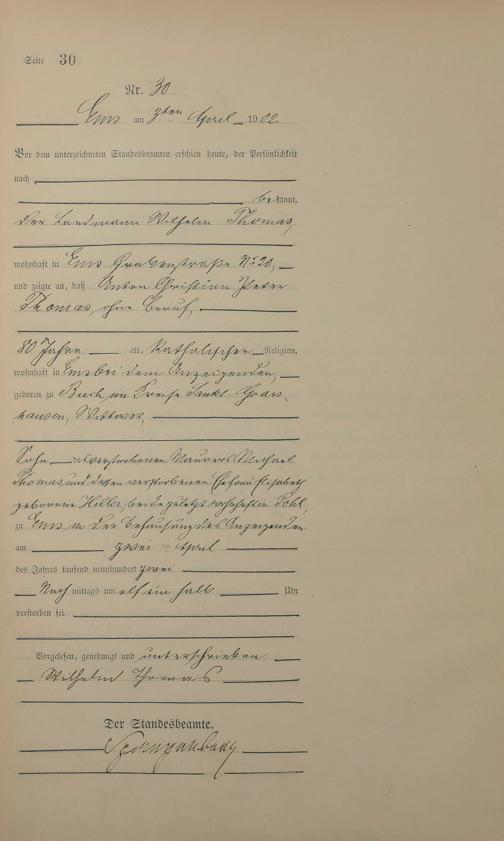 Seite 30
Nr. 30
Ems am 3ten April 1902
Vor dem unterzeichneten Standesbeamten erschien heute, der Persönlichkeit
nach
bekannt,
der Landmann Wilhelm Thomas,
wohnhaft in Ems Grabenstraße No 20,
und zeigte an, daß Anton Christian Peter
Thomas, ohne Beruf,
80 Jahre alt, katholischer Religion,
wohnhaft in Ems bei dem Anzeigenden,
geboren zu im Kreise Sankt Goars-
hausen, Wittwer,
Sohn des verstorbenen Maurers Michael
Thomas und dessen verstorbenen Ehefrau Elisabeth
geborene Hiller, beide zuletzt wohnhaft in
zu Ems in der Behausung des Anzeigenden
am zwei April
des Jahres tausend neunhundert zwei
Nach mittags um elf ein halb Uhr
verstorben sei.
Vorgelesen, genehmigt und unterschrieben
Wilhelm Thomas
Der Standesbeamte.